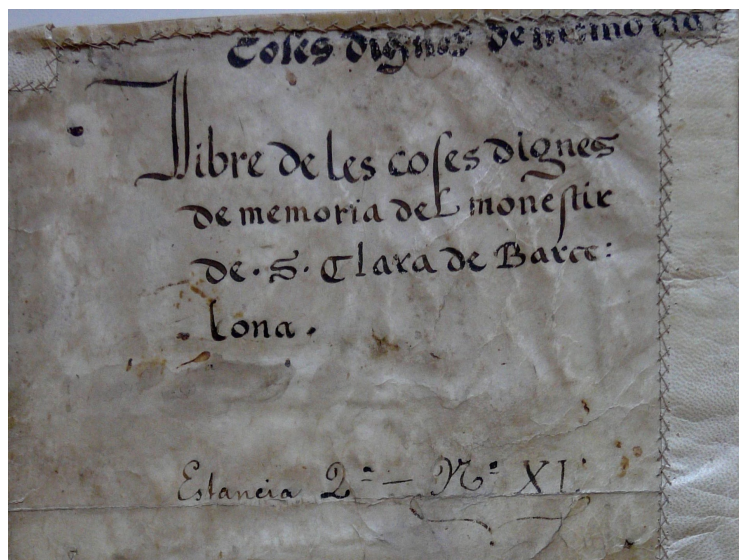 Coses dignes de memoria
Llibre de les coses dignes
de memoria del monestir
de · S · Clara de Barce:
lona .
Estancia 2ª — Nº XI.